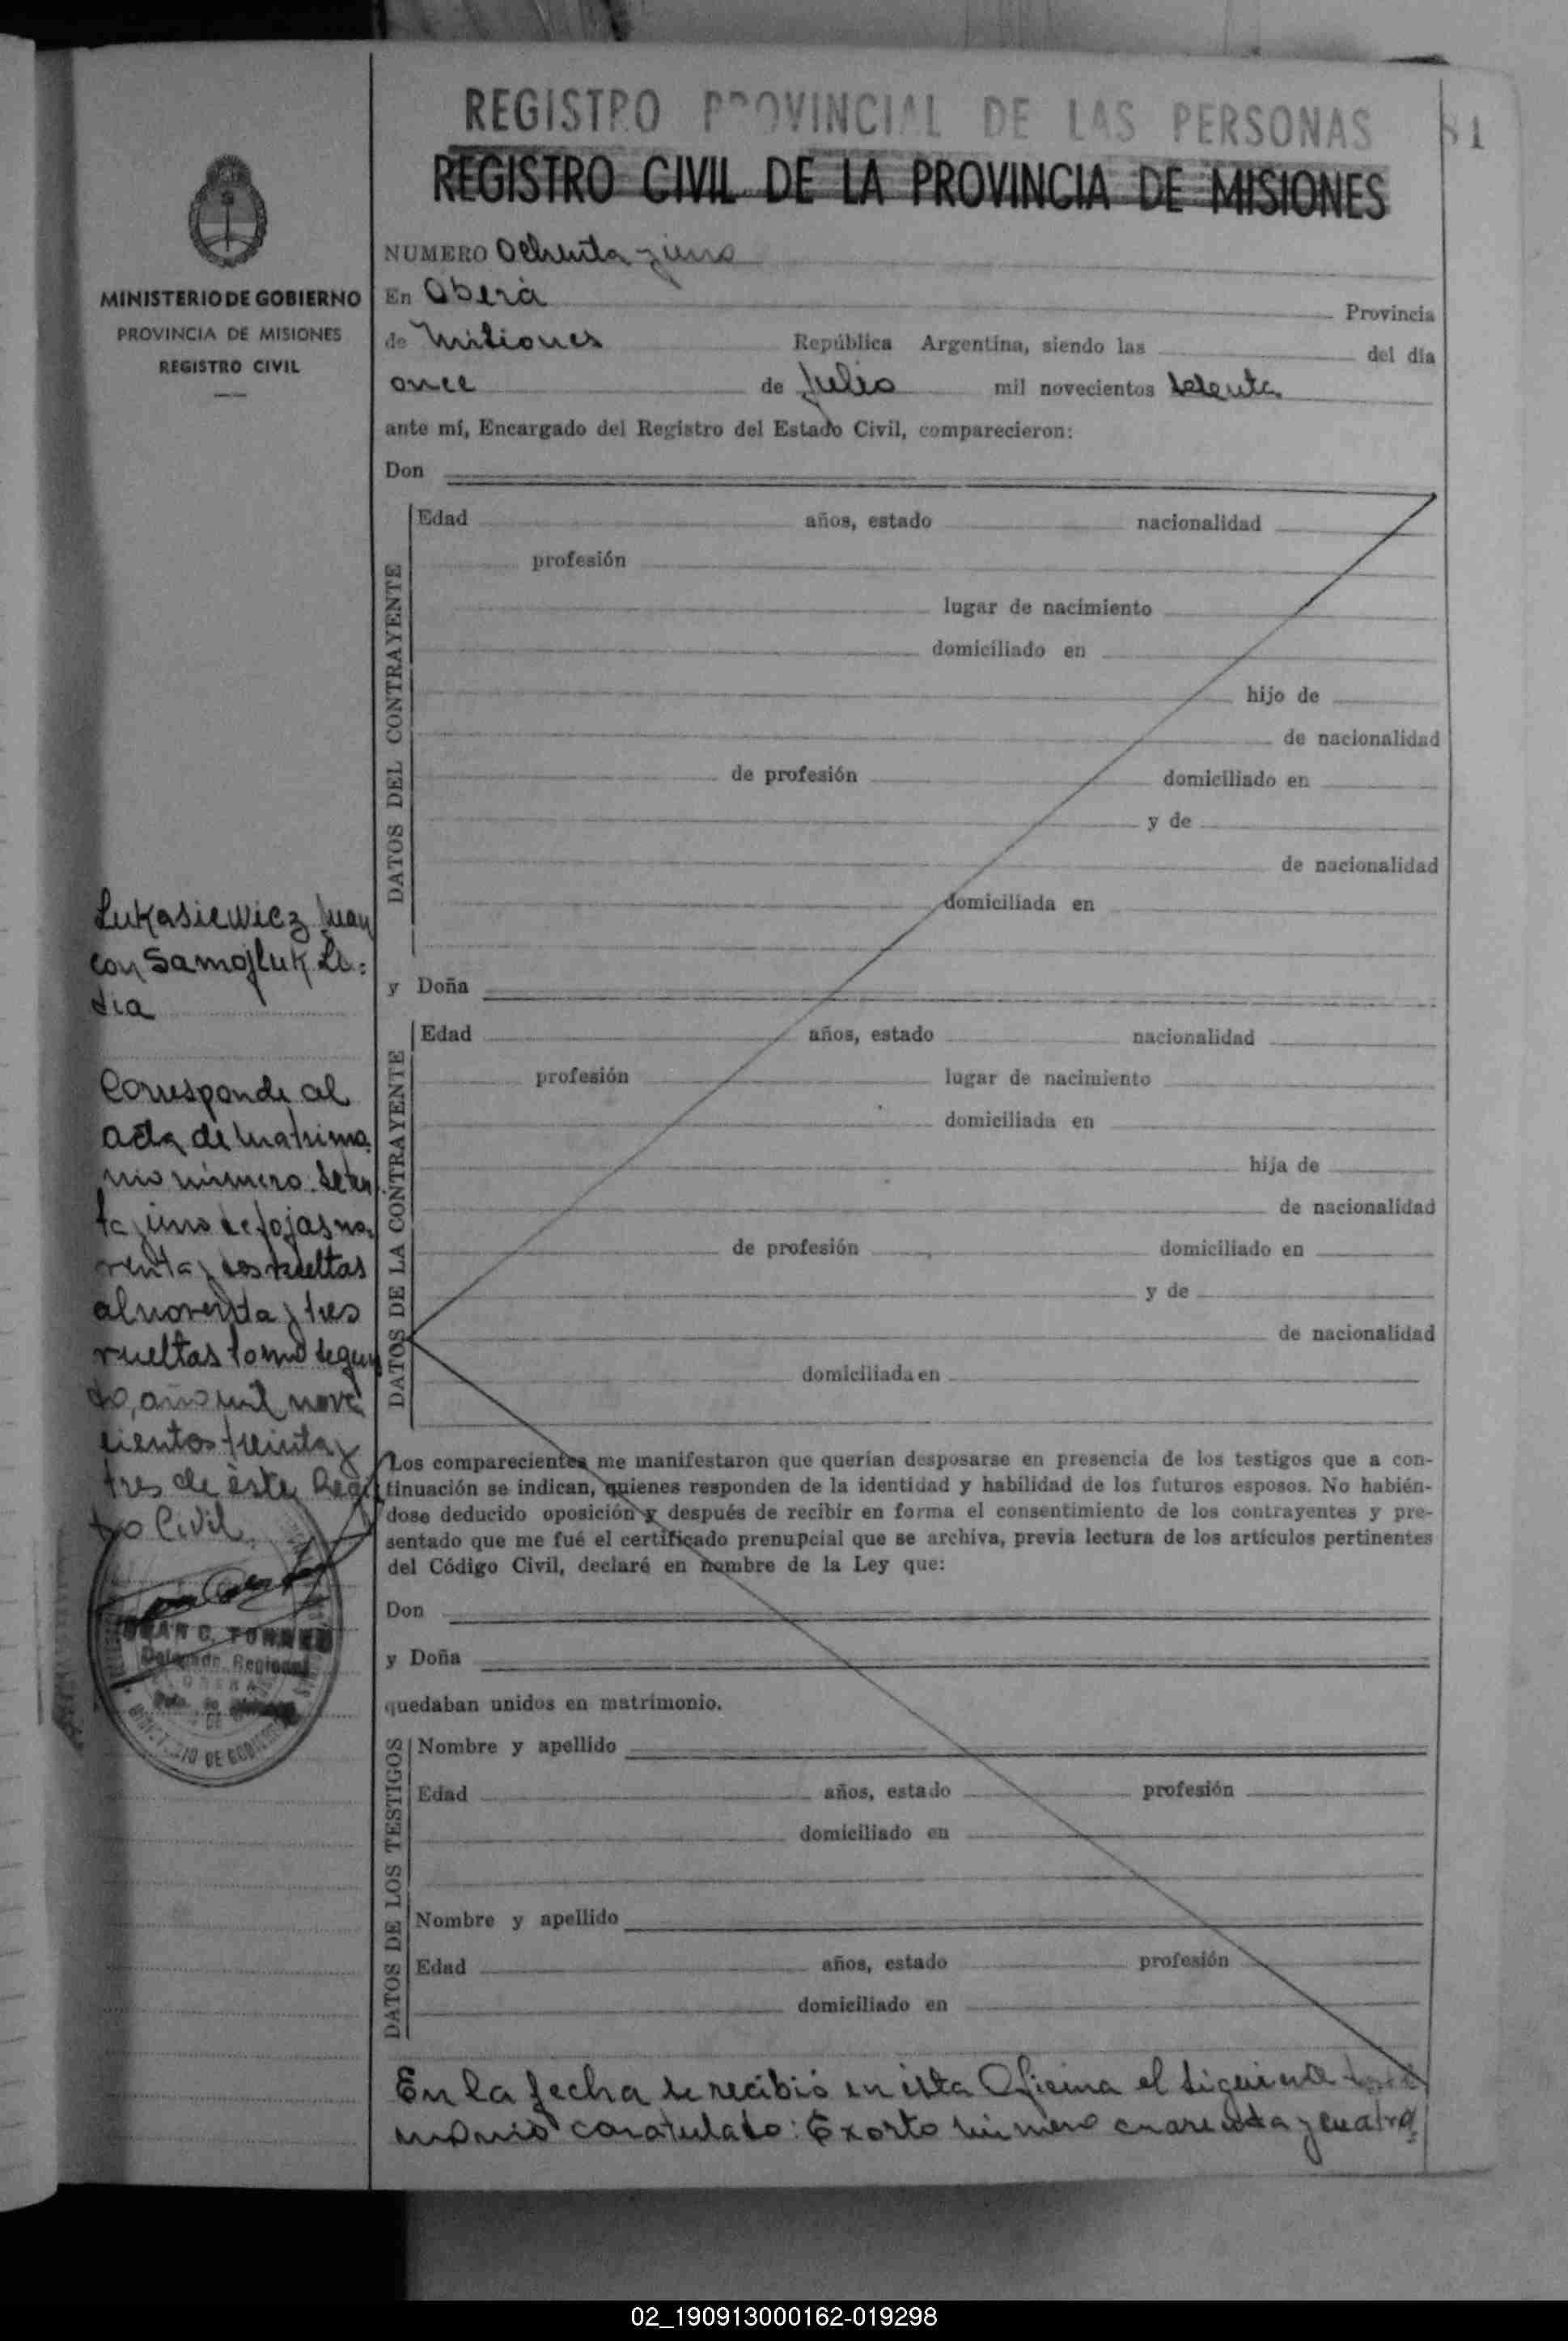 REGISTRO PROVINCIAL DE LAS PERSONAS
81
REGISTRO CIVIL DE LA PROVINCIA DE MISIONES
MINISTERIO DE GOBIERNO
PROVINCIA DE MISIONES
REGISTRO CIVIL
NUMERO Ochenta y uno
En Oberá Provincia
de Misiones República Argentina, siendo las del día
once de Julio mil novecientos setenta
ante mí, Encargado del Registro del Estado Civil, comparecieron:
Don
DATOS DEL CONTRAYENTE
Edad años, estado nacionalidad
profesión
lugar de nacimiento
domiciliado en
hijo de
de nacionalidad
de profesión domiciliado en
y de
de nacionalidad
domiciliada en
y Doña
DATOS DE LA CONTRAYENTE
Edad años, estado nacionalidad
profesión lugar de nacimiento
domiciliada en
hija de
de nacionalidad
de profesión domiciliado en
y de
de nacionalidad
domiciliada en
Los comparecientes me manifestaron que querían desposarse en presencia de los testigos que a con-
tinuación se indican, quienes responden de la identidad y habilidad de los futuros esposos. No habién-
dose deducido oposición y después de recibir en forma el consentimiento de los contrayentes y pre-
sentado que me fué el certificado prenupcial que se archiva, previa lectura de los artículos pertinentes
del Código Civil, declaré en nombre de la Ley que:
Don
y Doña
quedaban unidos en matrimonio.
DATOS DE LOS TESTIGOS
Nombre y apellido
Edad años, estado profesión
domiciliado en
Nombre y apellido
Edad años, estado profesión
domiciliado en
En la fecha se recibió en ésta Oficina el siguiente
caratulado: Exorto número cuarenta y cuatro
Lukasiewicz Juan
con Samojluk Li-
dia
Corresponde al
acta de matrimo
nio número seten
ta y uno de fojas no
venta y dos vueltas
al noventa y tres
vueltas tomo segun
do, año mil nove
cientos treinta y
tres de éste Regis
tro Civil.
JUAN C. TORRES
Delegado Regional
MINISTERIO DE GOBIERNO
02_190913000162-019298